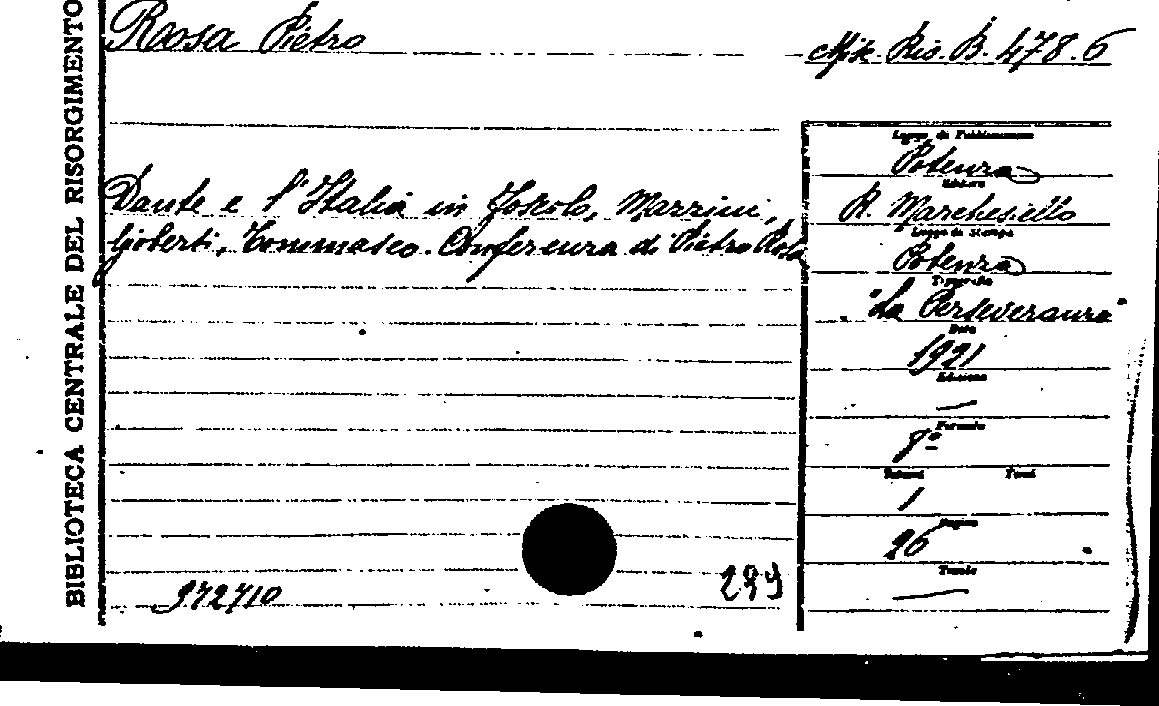 BIBLIOTECA CENTRALE DEL RISORGIMENTO
Rosa Pietro
Misc. Ris. B. 478.6
Dante e l'Italia in Foscolo, Mazzini,
Gioberti, Tommaseo. Conferenza di Pietro Rosa
Luogo di Pubblicazione
Potenza
Editore
R. Marchesiello
Luogo di Stampa
Potenza
Tipografia
"La Perseveranza"
Data
1921
Edizione
—
Formato
8º
Volumi Tomi
1
Pagine
26
Tavole
—
972710
299